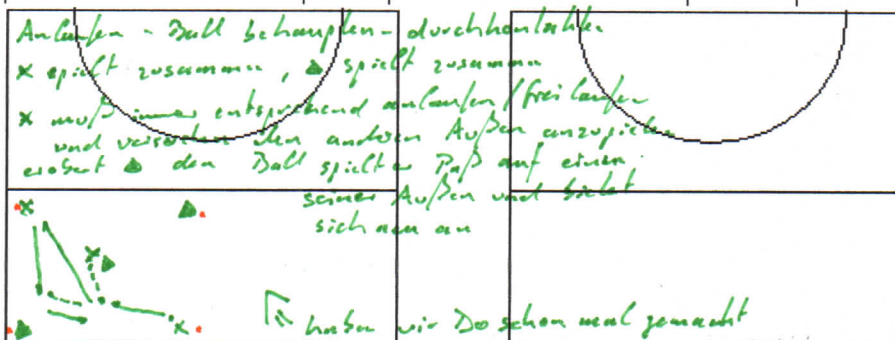 Anlaufen - Ball behaupten - durchkontakten
x spielt zusammen, ▲ spielt zusammen
x muß immer entsprechend anlaufen / frei laufen
und versuchen den anderen Außen anzuspielen
erobert ▲ den Ball spielt er Paß auf einen
seiner Außen und bietet
sich neu an
haben wir Do schon mal gemacht